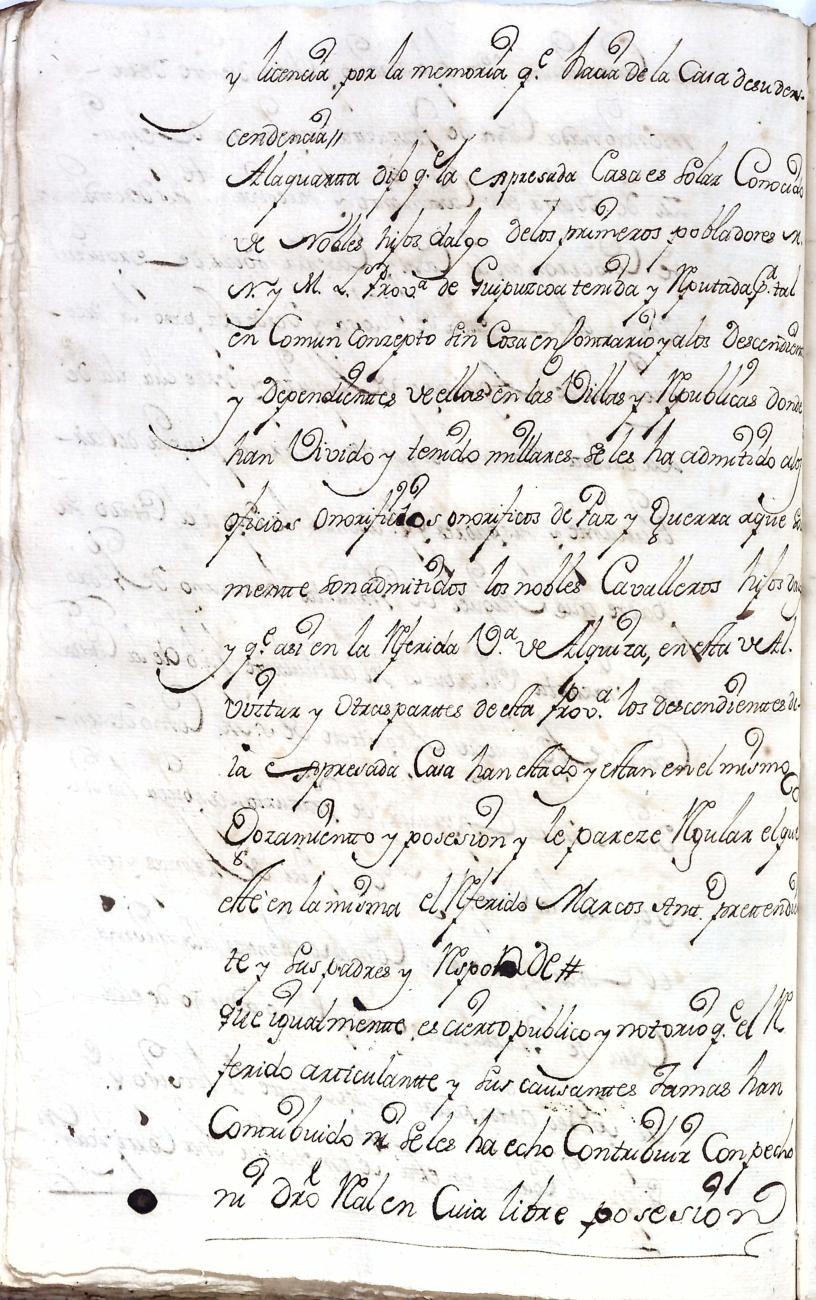 y licencia por la memoria q.e hacia de la Casa de su des-
cendencia//
Alaquartta dijo q.e la expresada Casa es solar Conocido
de Nobles hijos dalgo delos primeros pobladores
N. y M. L. Prov.a de Guipuzcoa tenida y Reputada p.r tal
en Comun Conzepto sin Cosa en Conttrario y alos Descendien
y Dependienttes de ellas en las Villas y Republicas donde
han Vivido y tenido millares se les ha admitido alos
oficios Onorificios onorificos de Paz y Guerra aque so
mentte son admitidos los nobles Cavalleros hijos dalg
y q.e asi en la Referida V.a de Alquiza, en esta de Al
viztur y Otras parttes de esta Prov.a los descendienttes de
la expresada Casa han estado y estan en el mismo
Gozamientto y posesion y le pareze Regular el que
esté en la misma el Referido Marcos Antt.o prettendien
te y sus padres y Responde#
que igualmentte es cierto publico y nottorio q.e el Re
ferido articulantte y sus causanttes Jamas han
Conttribuido ni seles ha echo Conttribuir Con pecho
ni Dro Real en Cuia libre posesion